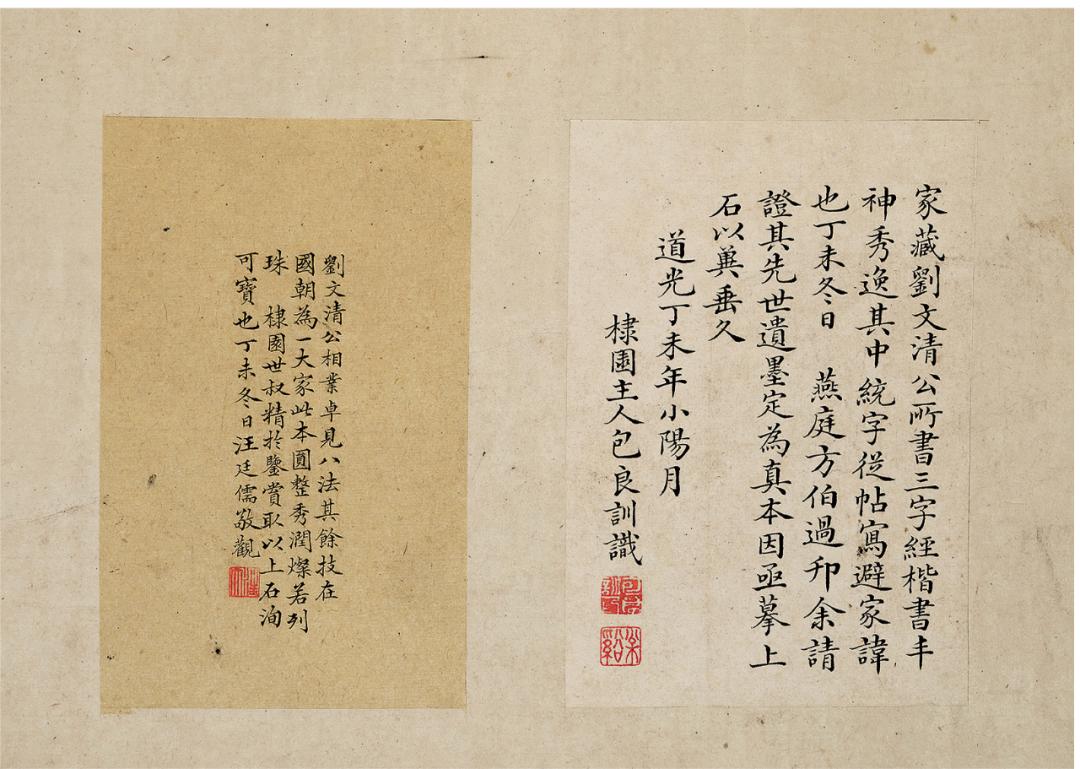 家藏劉文清公所書三字經楷書丰
神秀逸其中統字從帖寫避家諱
也丁未冬日　燕庭方伯過邘余請
證其先世遺墨定為真本因亟摹上
石以冀垂久
道光丁未年小陽月
棣園主人包良訓識
劉文清公相業卓見八法其餘技在
國朝為一大家此本圓整秀潤燦若列
珠　棣園世叔精於鑒賞取以上石洵
可寶也丁未冬日汪廷儒敬觀